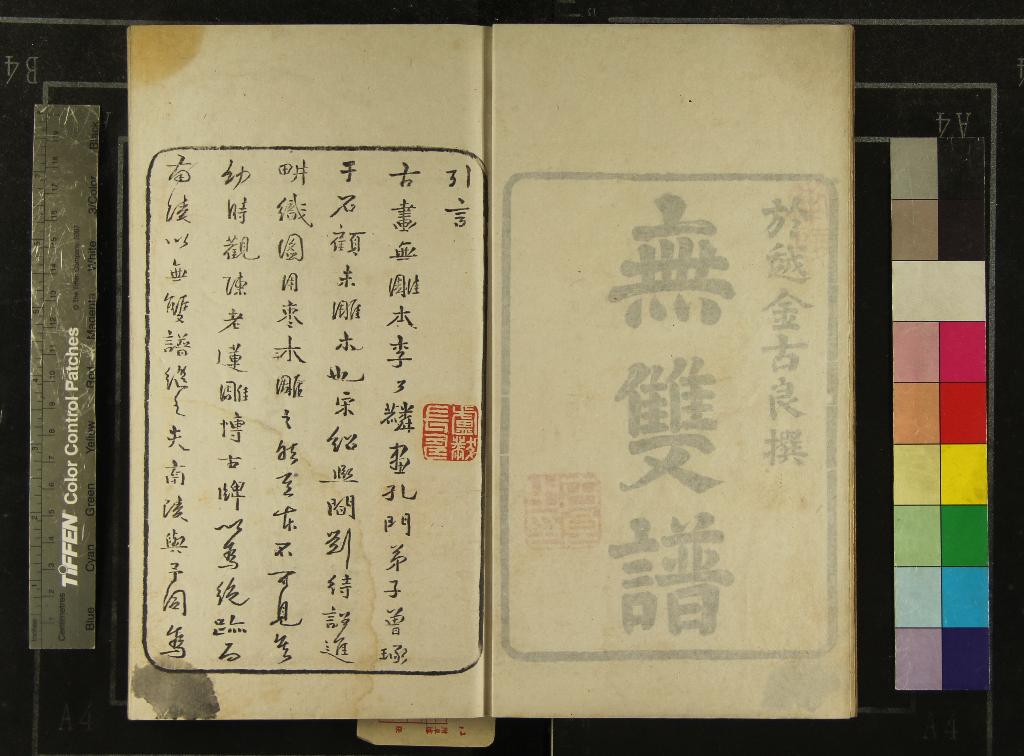 於越金古良撰
無雙譜
引言
古畫無雕本李公麟畫孔門弟子曾琢
于石顧未雕木也宋紹熙間劉待詔進
畊織圖用棗木雕之然至今不可見矣
幼時觀陳老蓮雕博古牌以為絕蹟而
南陵以無雙譜繼之夫南陵與予同為
TIFFEN Color Control Patches
Blue Cyan Green Yellow Red Magenta White 3/Color Black
Centimetres
Inches
B4
A4
A4
A4